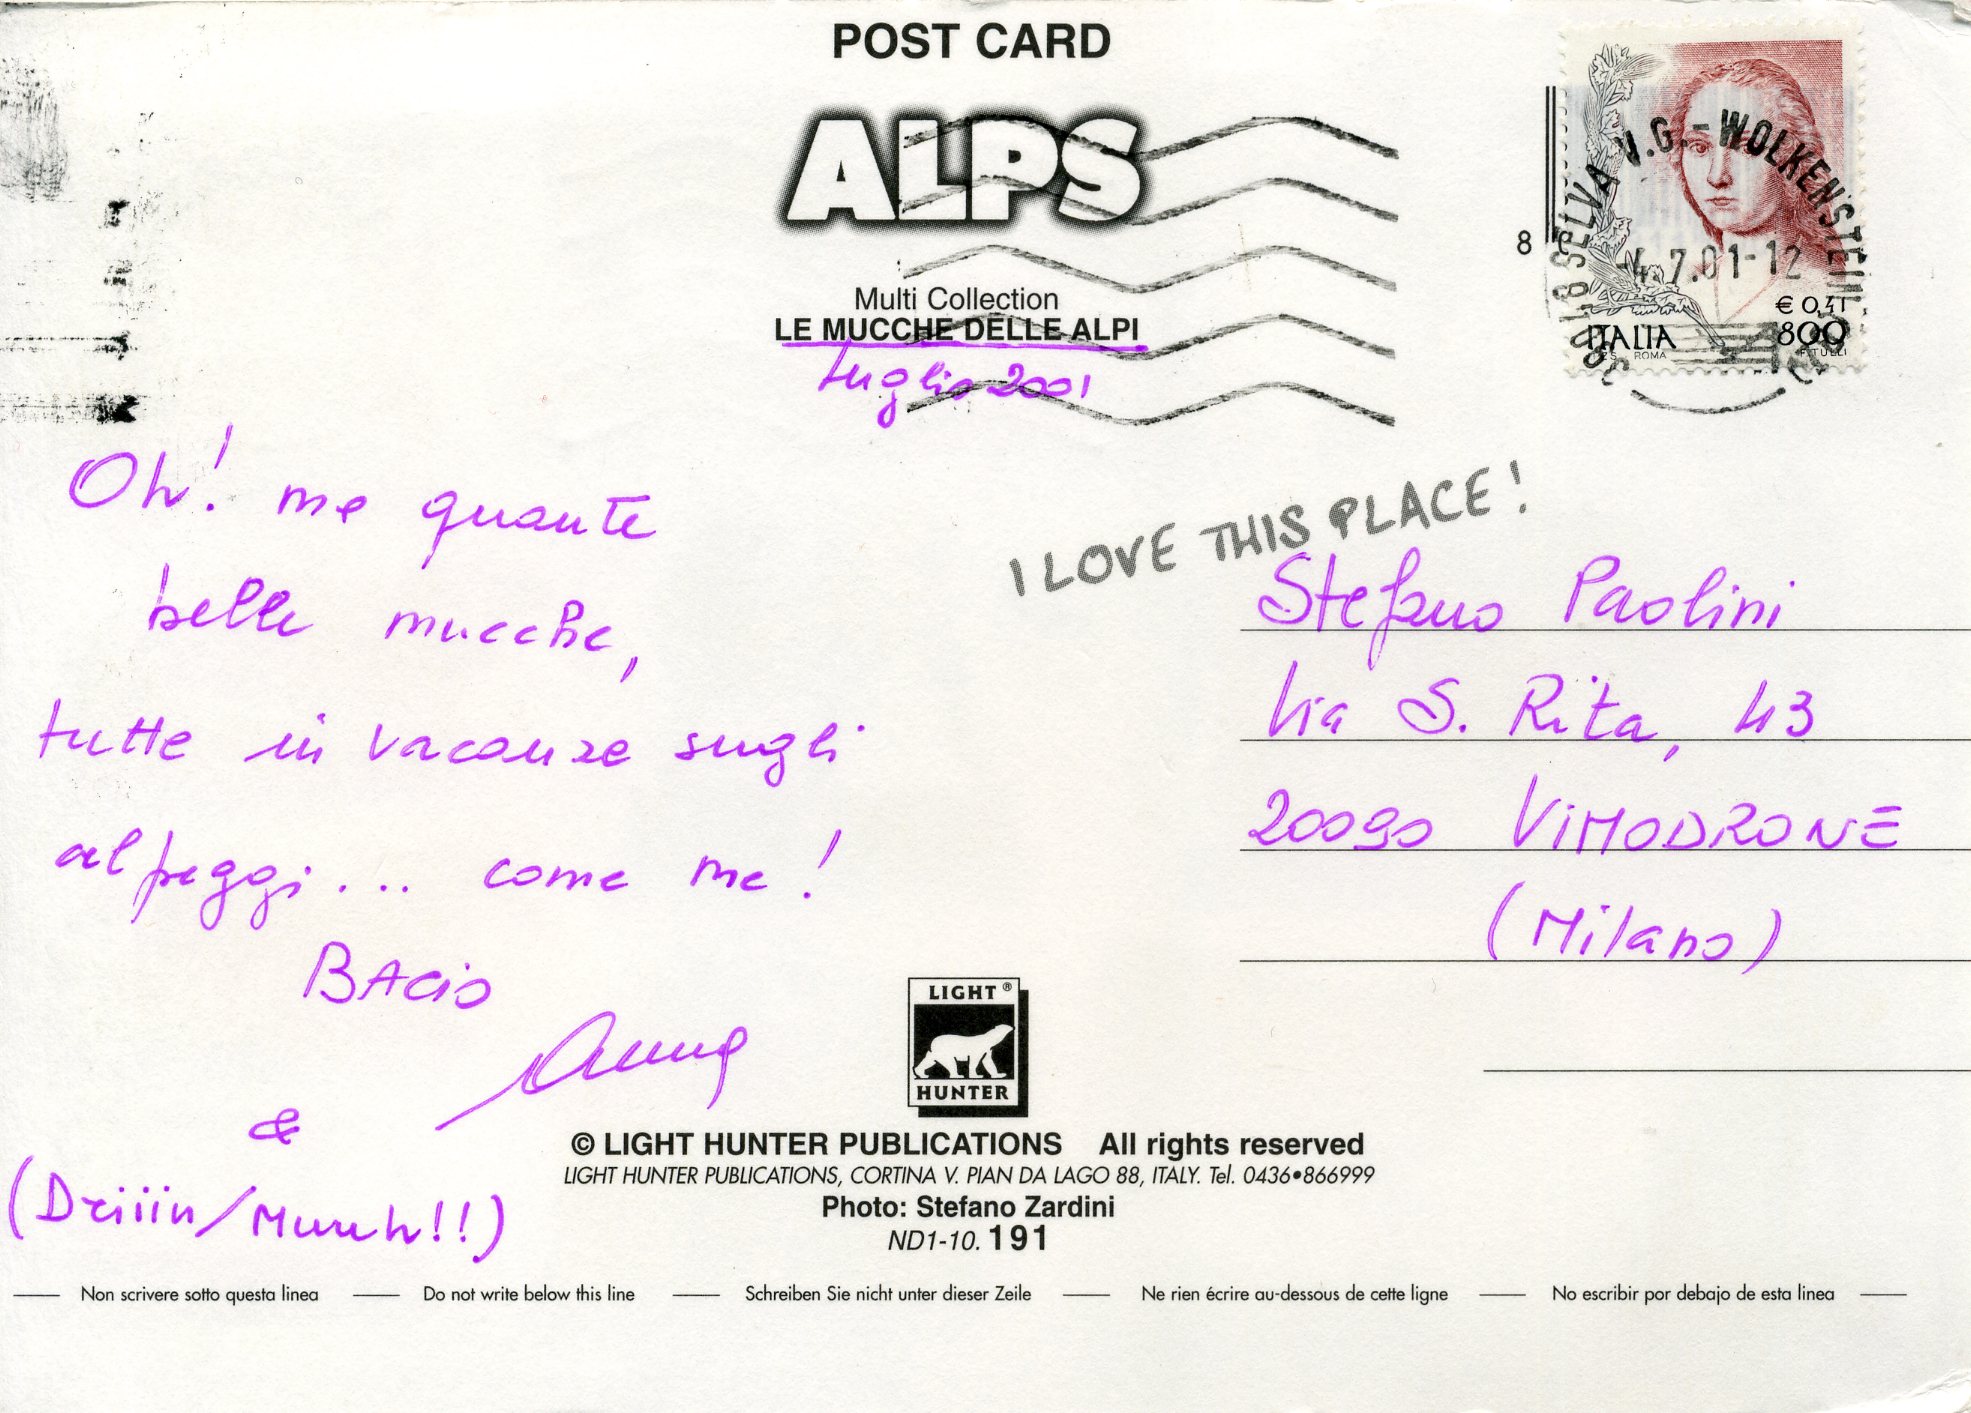 POST CARD
ALPS
Multi Collection
LE MUCCHE DELLE ALPI
Luglio 2001
SELVA V.G. - WOLKENSTEIN
-4.7.01-12
8
€ 0,41
800
ITALIA
ROMA
F. TULLI
Oh! ma quante
belle mucche,
tutte in vacanze sugli
alpeggi... come me!
BACIO
Anna
&
(Driiin/Muuuh!!)
I LOVE THIS PLACE!
Stefano Paolini
Via S. Rita, 43
20090 VIMODRONE
(Milano)
LIGHT ®
HUNTER
© LIGHT HUNTER PUBLICATIONS All rights reserved
LIGHT HUNTER PUBLICATIONS, CORTINA V. PIAN DA LAGO 88, ITALY. Tel. 0436•866999
Photo: Stefano Zardini
ND1-10. 191
Non scrivere sotto questa linea Do not write below this line Schreiben Sie nicht unter dieser Zeile Ne rien écrire au-dessous de cette ligne No escribir por debajo de esta linea